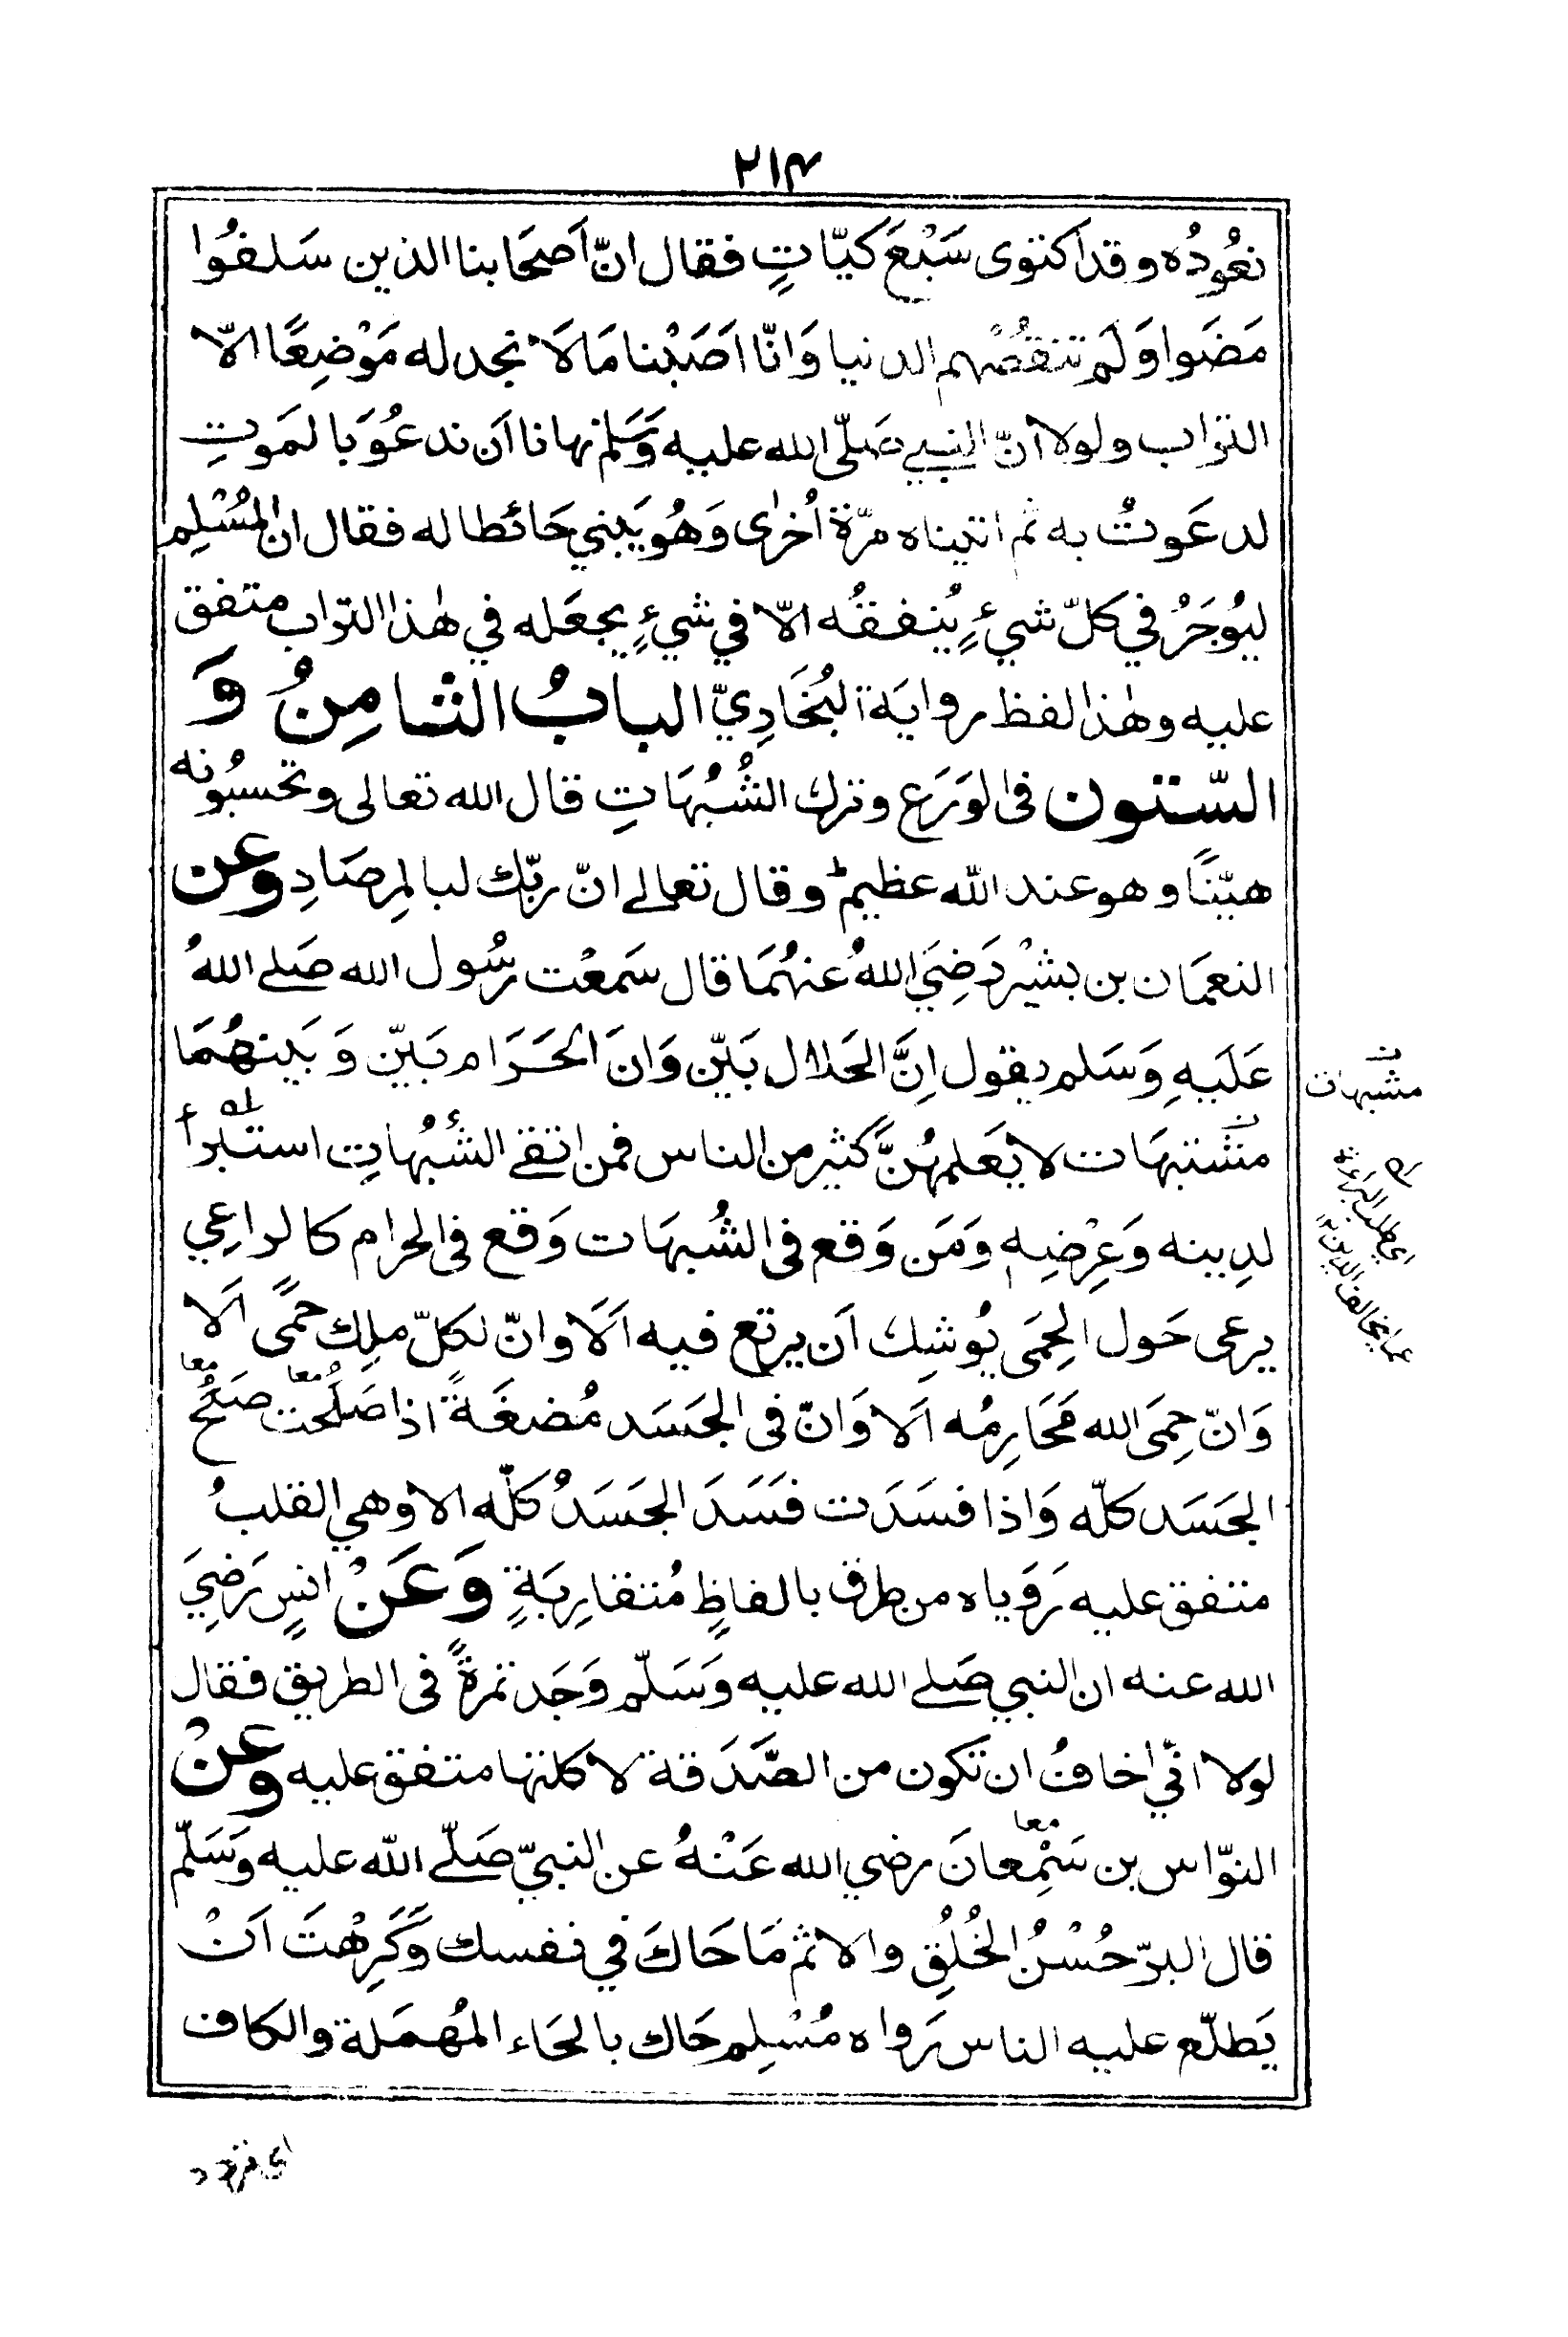 ٢١٤
نعُودُه وقد اكتوى سَبْعَ كيّاتٍ فقال انّ اَصحَابنا الذين سَلفُوا
مَضَوا وَلَم تنقُصْهم الدنيا وَانّا اَصَبْنا مَا لَا نجد له مَوْضِعًا الّا
التراب ولولا انّ النبي صَلّى الله عليه وَسَلم نهانا اَن ندعُوَ بالمَوتِ
لدعَوتُ به ثم اتيناه مرّة اُخرٰى وَهُو يَبني حَائطا له فقال ان المُسْلِم
ليُوجَرُ في كلّ شيءٍ يُنفقُه الّا في شيءٍ يجعَله في هٰذا التراب متفق
عليه وهٰذا لفظ رواية البُخَارِيّ البابُ الثامِنُ وَ
السّتون فى الوَرَع وترك الشُبُهَاتِ قال الله تعالى وتحسبُونه
هيّنًا وهو عند الله عظيم وقال تعالى انّ ربّك لبالمِرصَادِ وعن
النعمَان بن بشيْر رَضِيَ اللهُ عنهُمَا قال سَمعْت رسُول الله صَلى اللهُ
عَلَيهِ وَسَلم يقول اِنَّ الحَلال بَيّن وَانَ الحَرَام بَيّن وَبَينهُمَا
مشتبهَات لا يَعلمهُنَّ كثير من الناس فمن اتقى الشبُهاتِ استبرأ
لدِينه وَعِرْضِه وَمَن وَقع فى الشُبهَات وَقع فى الحرام كالراعِي
يرعى حَول الحِمَى يُوشِك اَن يرتع فيه اَلَا وانّ لكلّ ملِك حمًى اَلا
وَانّ حِمَى الله مَحَارِمُه اَلا وَانّ فى الجَسَد مُضغَةً اذا صَلَُحت صَلَُح
الجَسَد كلّه وَاذا فسَدَت فسَدَ الجَسَدُ كلّه الا وهي القلبُ
متفق عليه رَوَياه من طرق بالفاظٍ مُتقارِبَةٍ وَعَنْ انسٍ رَضِيَ
الله عنه ان النبي صَلى الله عليه وَسَلّم وَجَد تمرةً فى الطريق فقال
لولا انّي اخافُ ان تكون من الصَّدَقة لاكلتها متفق عليه وعنْ
النوّاس بن سَِمْعانَ رضي الله عَنْهُ عن النبيّ صَلّى الله عليه وَسَلّم
قال البرّ حُسْنُ الخُلُقِ والاثم مَا حَاكَ في نفسك وَكَرِهْتَ اَنْ
يَطلّع عليه الناس رَواه مُسْلِم حَاك بالحَاء المُهمَلة والكاف
ن
مشبهات
اى طلب البراءة